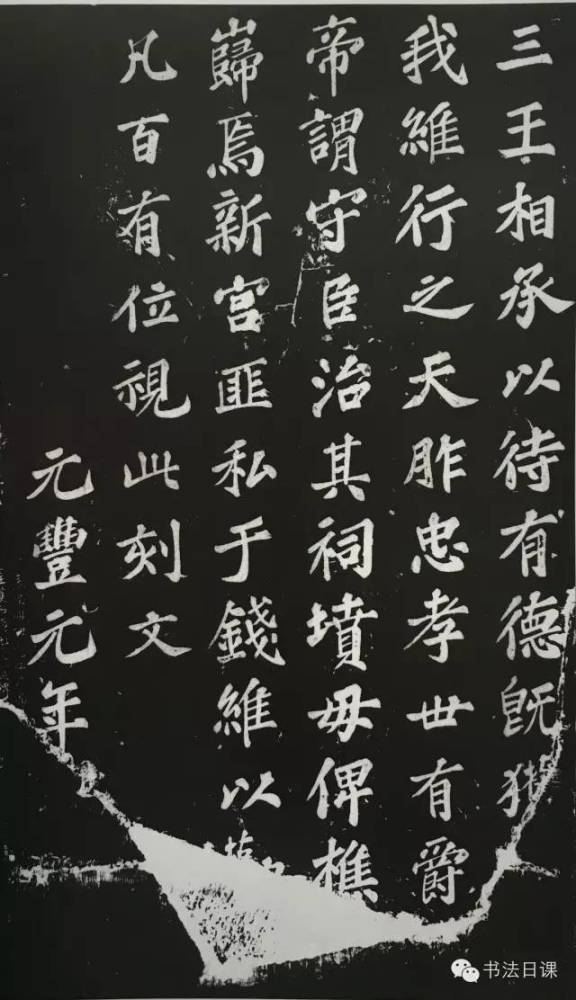 三王相承以待有德旣
我維行之天胙忠孝世有爵
帝謂守臣治其祠墳毋俾樵
巋焉新宮匪私于錢維以
凡百有位視此刻文
元豐元年
书法日课